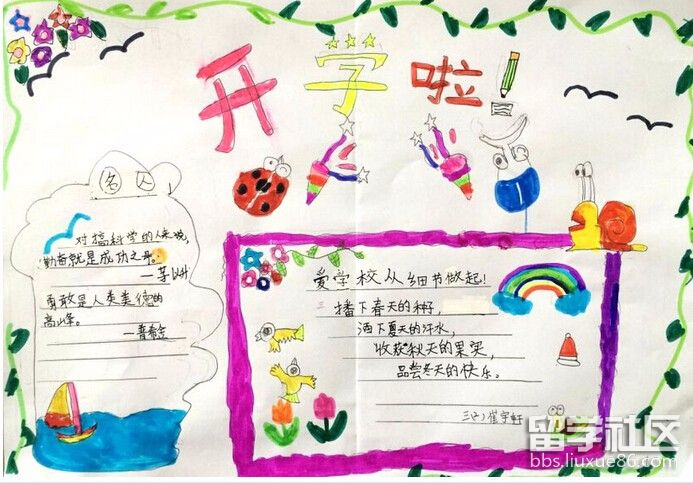 开学啦!
名人
对搞科学的人来说,
勤奋就是成功之母。
—茅以升
勇敢是人类美德的
高峰。
—普希金
爱学校从细节做起!
播下春天的种子,
洒下夏天的汗水,
收获秋天的果实,
品尝冬天的快乐。
三(2) 崔宇轩
留学社区
bbs.liuxue86.com